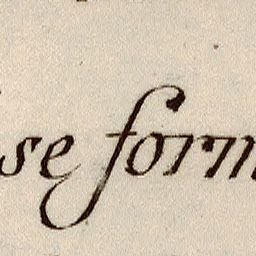 se form